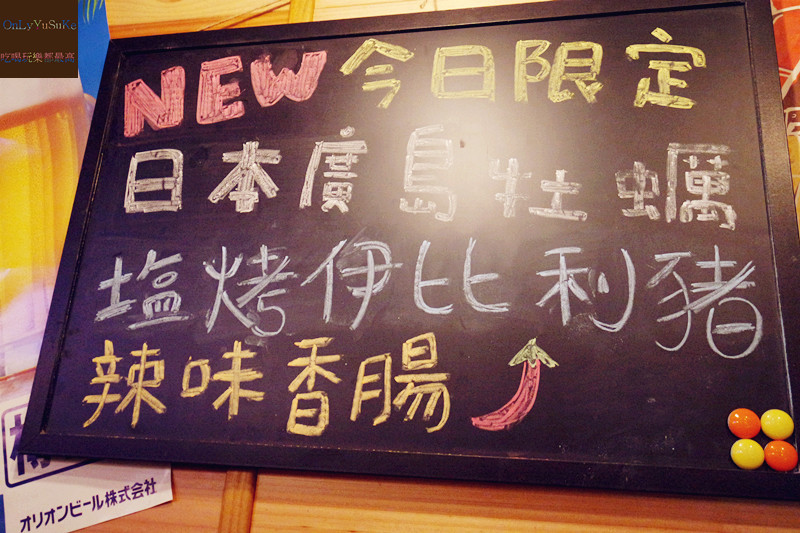 OnLyYuSuKe
吃喝玩樂都最高
NEW 今日限定
日本廣島牡蠣
塩烤伊比利豬
辣味香腸
オリオンビール株式会社